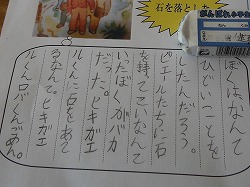 石を落とした
がんばれ
ぼくは、なんて
ひどいことを
したんだろう。
ピエールたちに石
を持てこいなんて
いたぼくがバカ
だった。ヒキガエ
ルくんに石をあて
るなんて。ヒキガエ
ルくん、ロバくんごめん。